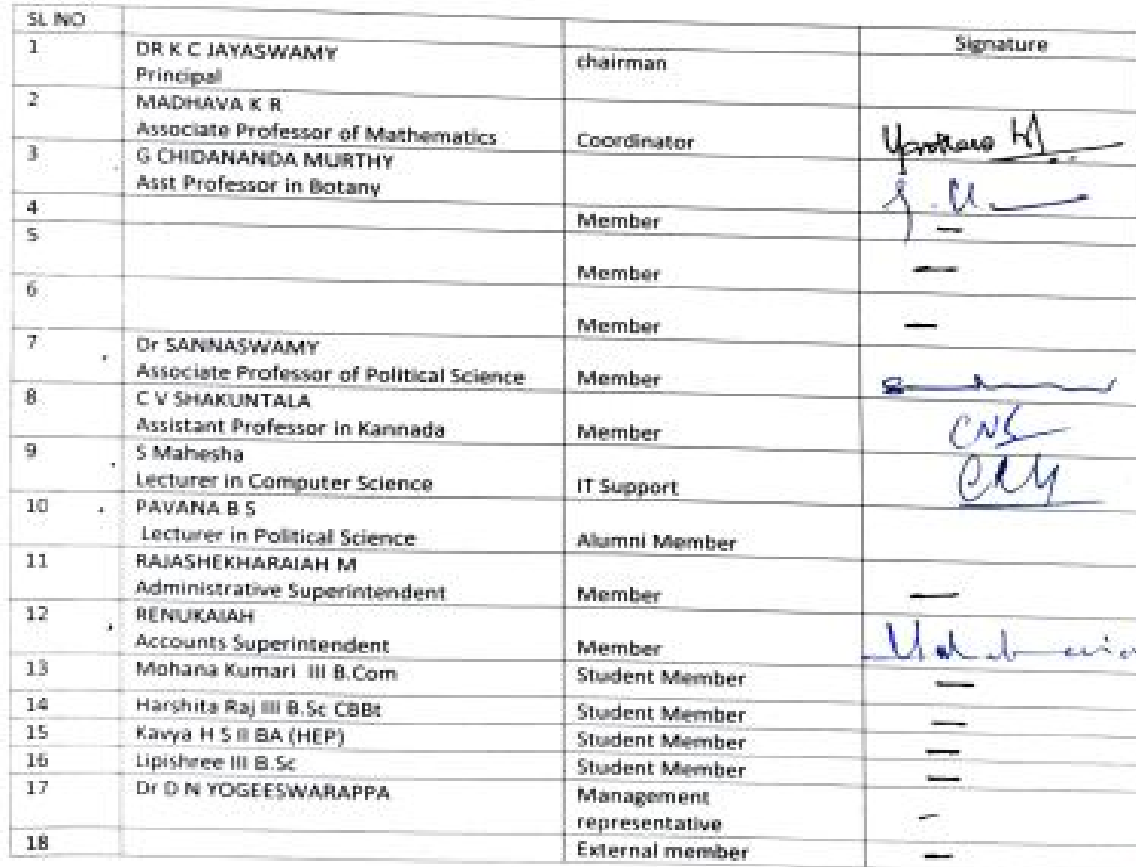 SL NO
Signature
1 DR K C JAYASWAMY chairman
Principal
2 MADHAVA K R
Associate Professor of Mathematics Coordinator
3 G CHIDANANDA MURTHY
Asst Professor in Botany
4 Member
5
Member
6
Member
7 Dr SANNASWAMY
Associate Professor of Political Science Member
8 C V SHAKUNTALA
Assistant Professor in Kannada Member
9 S Mahesha
Lecturer in Computer Science IT Support
10 PAVANA B S
Lecturer in Political Science Alumni Member
11 RAJASHEKHARAIAH M
Administrative Superintendent Member
12 RENUKAIAH
Accounts Superintendent Member
13 Mohana Kumari III B.Com Student Member
14 Harshita Raj III B.Sc CBBt Student Member
15 Kavya H S II BA (HEP) Student Member
16 Lipishree III B.Sc Student Member
17 Dr D N YOGEESWARAPPA Management
representative
18 External member